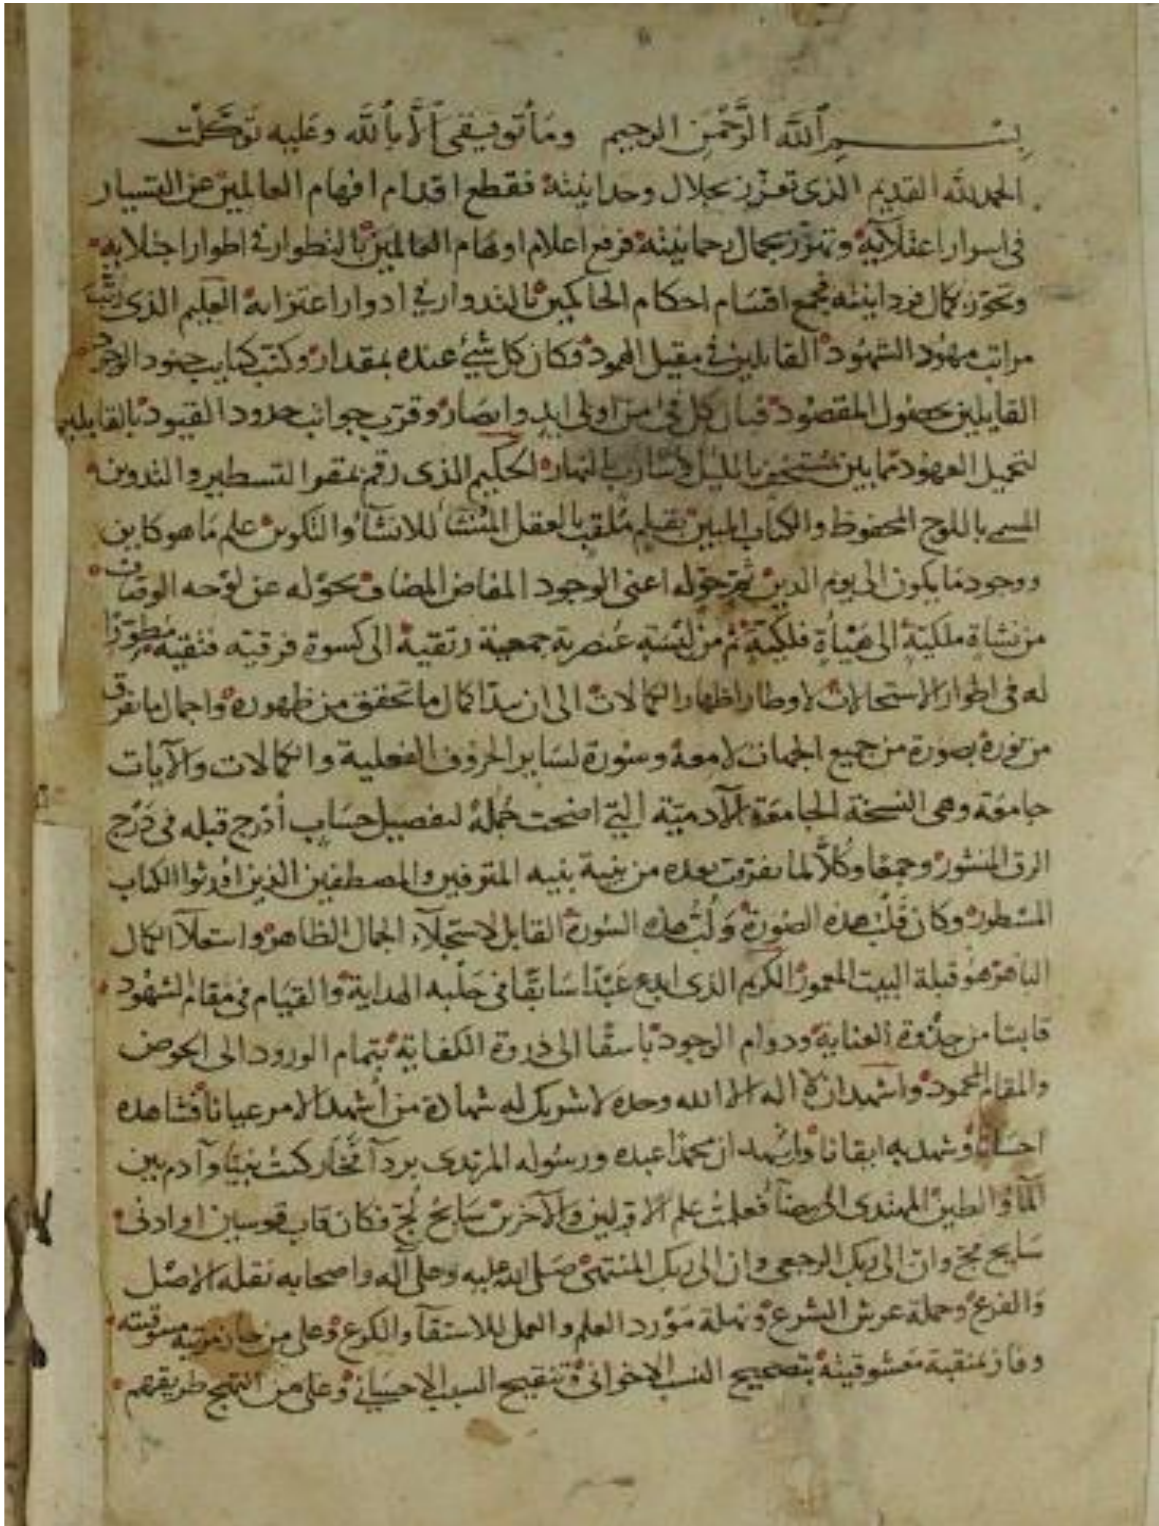 بسم الله الرحمن الرحيم وما توفيقي الا بالله وعليه توكلت
الحمد لله القديم الذى تعزز بجلال وحدانيته فقطع اقدام افهام العالمين عن التسيار
فى اسرار اعتلائه وتنور بجمال رحمانيته فرفع اعلام اوهام العالمين بالتطوار فى اطوار اجتلائه
بكمال فردانيته فجمع اقسام احكام الحاكمين بالتدوار فى ادوار اعتزائه العليم الذى رتب
مراتب الشهود القابلين فى مقيل فكان كل شئ عنده بمقدار وكتب كتايب جنود الوجود
القايلين بحصول المقصود كل من اولى ايد وابصار وقرب جوانب حدود القيود بالقابلين
العهود مستخف بالليل وسارب بالنهار الحكيم الذى رقم التسطير والتدوين
المسمى باللوح المحفوظ والكتاب المبين بقلم ملقب بالعقل المنشأ للانشاء والتكوين علم ما هو كاين
ووجود ما يكون الى يوم الدين اعنى الوجود المفاض المضاف بحوله عن لوحه
من نشاة ملكية الى هيأة فلكية ثم من لبسة عنصرية جمعية رتقية الى كسوة فرقية فتقية مطورا
له فى اطوار الاستحالات لاوطار اظهار الكمالات الى ان بدا كمال ما تحقق من ظهوره واجمال ما تفرق
من نوره بصورة من جميع الجهات لامعة وسورة لساير الحروف الفعلية والكمالات والآيات
جامعة وهى النسخة الجامعة الآدمية التى اضحت جملة لتفصيل حساب أدرج قبله فى درج
الرق المنشور وجمعا وكلا لما تفرقت بعده من بنية بنيه المتوفين والمصطفين الذين اورثوا الكتاب
المسطور وكان قلب هذه الصورة ولب هذه السورة القابل لاستجلاء الجمال الظاهر واستعلاء الكمال
الباهر هو قبلة البيت المعمور الكريم الذى ابدع عبدا سابقا فى حلبه الهداية والقيام فى مقام الشهود
من جذوة العناية ودوام الوجود باسقا الى ذروة الكفاية بتمام الورود الى الحوض
والمقام المحمود واشهد ان لا اله الا الله وحده لا شريك له شهادة من أشهد الامر عيانا فشاهده
احسانا وشهد به ايقانا واشهد ان محمدا عبده ورسوله المرتدى بردآ كنت نبيا وآدم بين
المآء والطين المهتدى فعلمت علم الاولين والآخرين سابح لجج فكان قاب قوسين او ادنى
سايح وان الى ربك الرجعى وان الى ربك المنتهى صلى الله عليه وعلى آله واصحابه نقلة الاصل
والفرع وحملة عرش الشرع ونهلة مورد العلم والعمل للاستقاء والكرع وعلى من حاز
وفاز بمنقبة معشوقيته بتصحيح النسب الاخوانى وتنقيح السبب الاحسانى وعلى من انتهج طريقهم